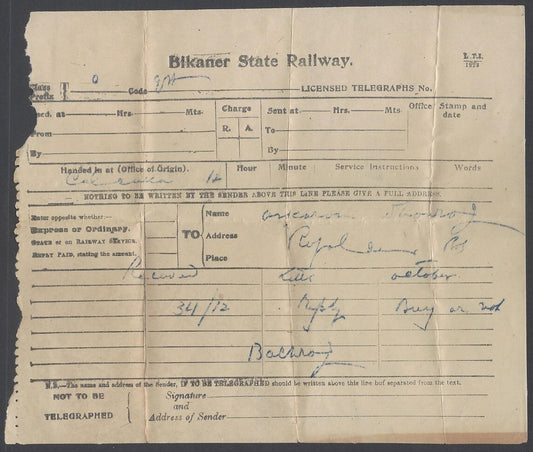 Bikaner State Railway.
L. T. 1.
Class Prefix T 0 Code LICENSED TELEGRAPHS No.
Recd. at Hrs. Mts. Charge Sent at Hrs. Mts. Office Stamp and date
From R. A. To
By By
Handed in at (Office of Origin). Hour Minute Service Instructions Words
12
NOTHING TO BE WRITTEN BY THE SENDER ABOVE THIS LINE PLEASE GIVE A FULL ADDRESS.
Enter opposite whether:— Name
Express or Ordinary. TO Address
STATE or on RAILWAY SERVICE.
REPLY PAID, stating the amount. Place
Received october
34/12 Reply Buy or not
N.B.—The name and address of the Sender, IF TO BE TELEGRAPHED should be written above this line but separated from the text.
NOT TO BE TELEGRAPHED Signature
and
Address of Sender